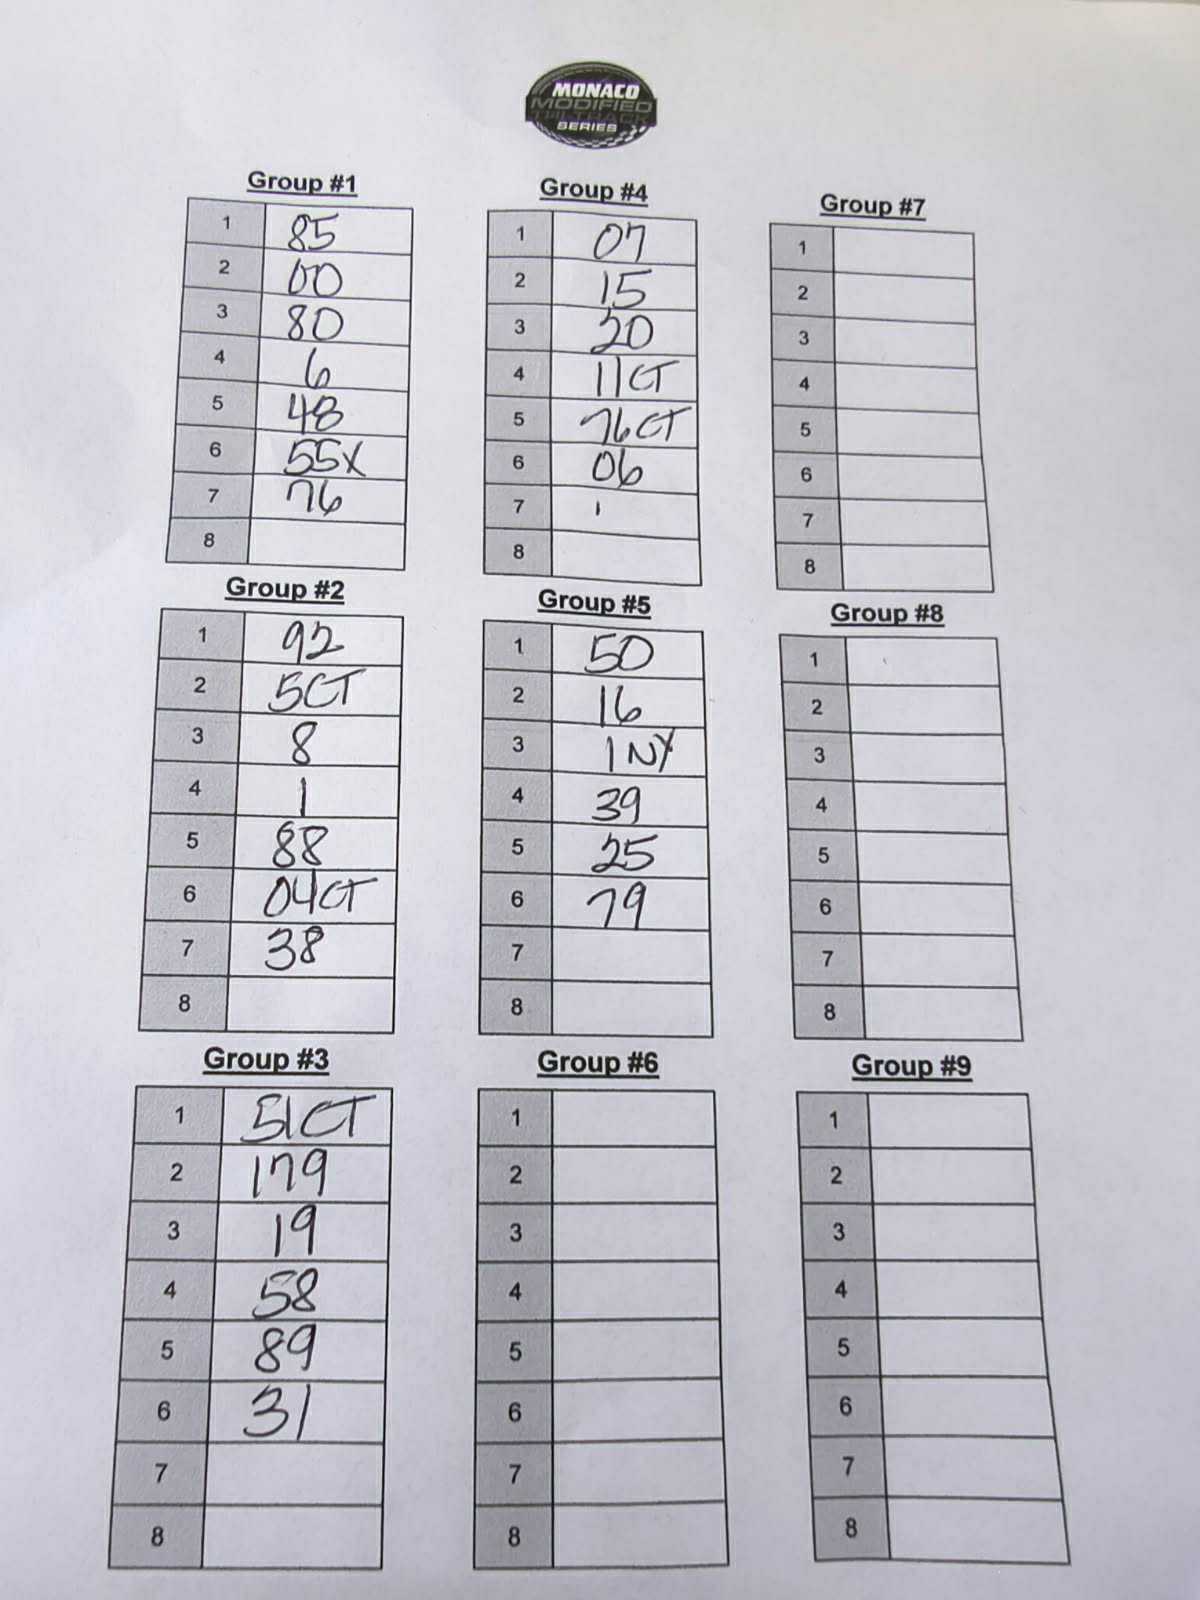 MONACO
MODIFIED
TRI TRACK
SERIES
Group #1
1 85
2 00
3 80
4 6
5 48
6 55X
7 76
8
Group #2
1 92
2 5CT
3 8
4 1
5 88
6 04CT
7 38
8
Group #3
1 51CT
2 179
3 19
4 58
5 89
6 31
7
8
Group #4
1 07
2 15
3 20
4 11CT
5 76CT
6 06
7
8
Group #5
1 50
2 16
3 1NY
4 39
5 25
6 79
7
8
Group #6
1
2
3
4
5
6
7
8
Group #7
1
2
3
4
5
6
7
8
Group #8
1
2
3
4
5
6
7
8
Group #9
1
2
3
4
5
6
7
8